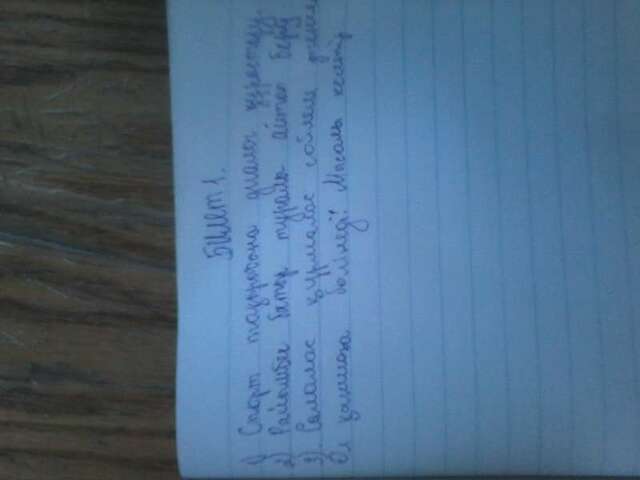 Билет 1.
1) Спорт тақырыбына диалог құрастыру.
2) Райымбек батыр туралы айтып беру
3) Салалас құрмалас сөйлем дегенім
Ол қаншаға бөлінеді? Мысалы келтір